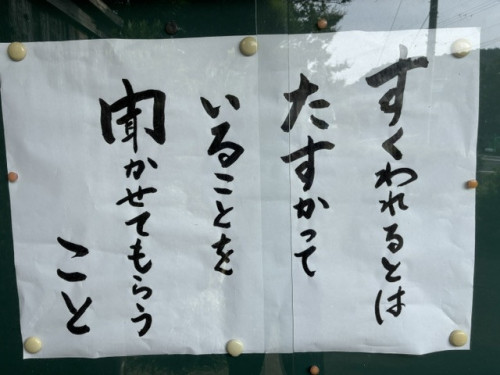 すくわれるとは
たすかって
いることを
聞かせてもらう
こと